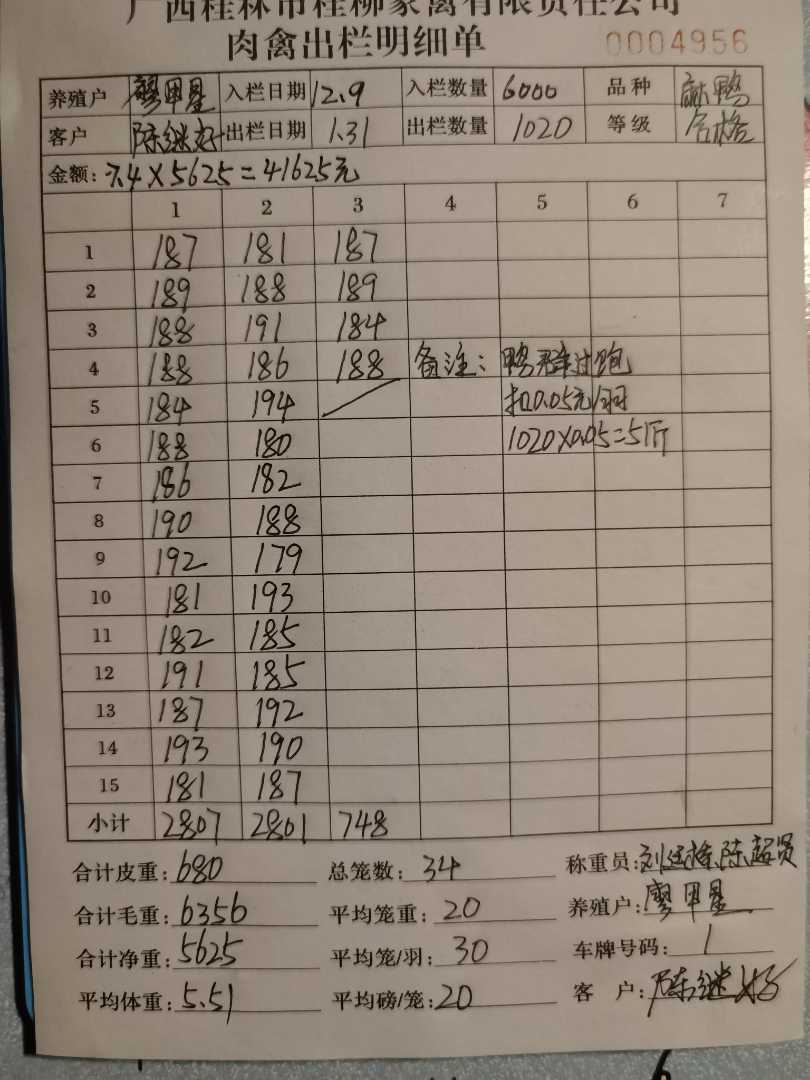 广西桂林市桂柳家禽有限责任公司
肉禽出栏明细单 0004956
养殖户 廖甲星 入栏日期 12.9 入栏数量 6000 品种 麻鸭
客户 陈继好 出栏日期 1.31 出栏数量 1020 等级 合格
金额: 7.4×5625=41625元
1 2 3 4 5 6 7
1 187 181 187
2 189 188 189
3 188 191 184
4 188 186 188 备注: 鸭 过饱
5 184 194 扣0.05元/羽
6 188 180 1020×0.05=51斤
7 186 182
8 190 188
9 192 179
10 181 193
11 182 185
12 191 185
13 187 192
14 193 190
15 181 187
小计 2807 2801 748
合计皮重: 680 总笼数: 34 称重员: 陈超贤
合计毛重: 6356 平均笼重: 20 养殖户: 廖甲星
合计净重: 5625 平均笼/羽: 30 车牌号码: 1
平均体重: 5.51 平均磅/笼: 20 客 户: 陈继好